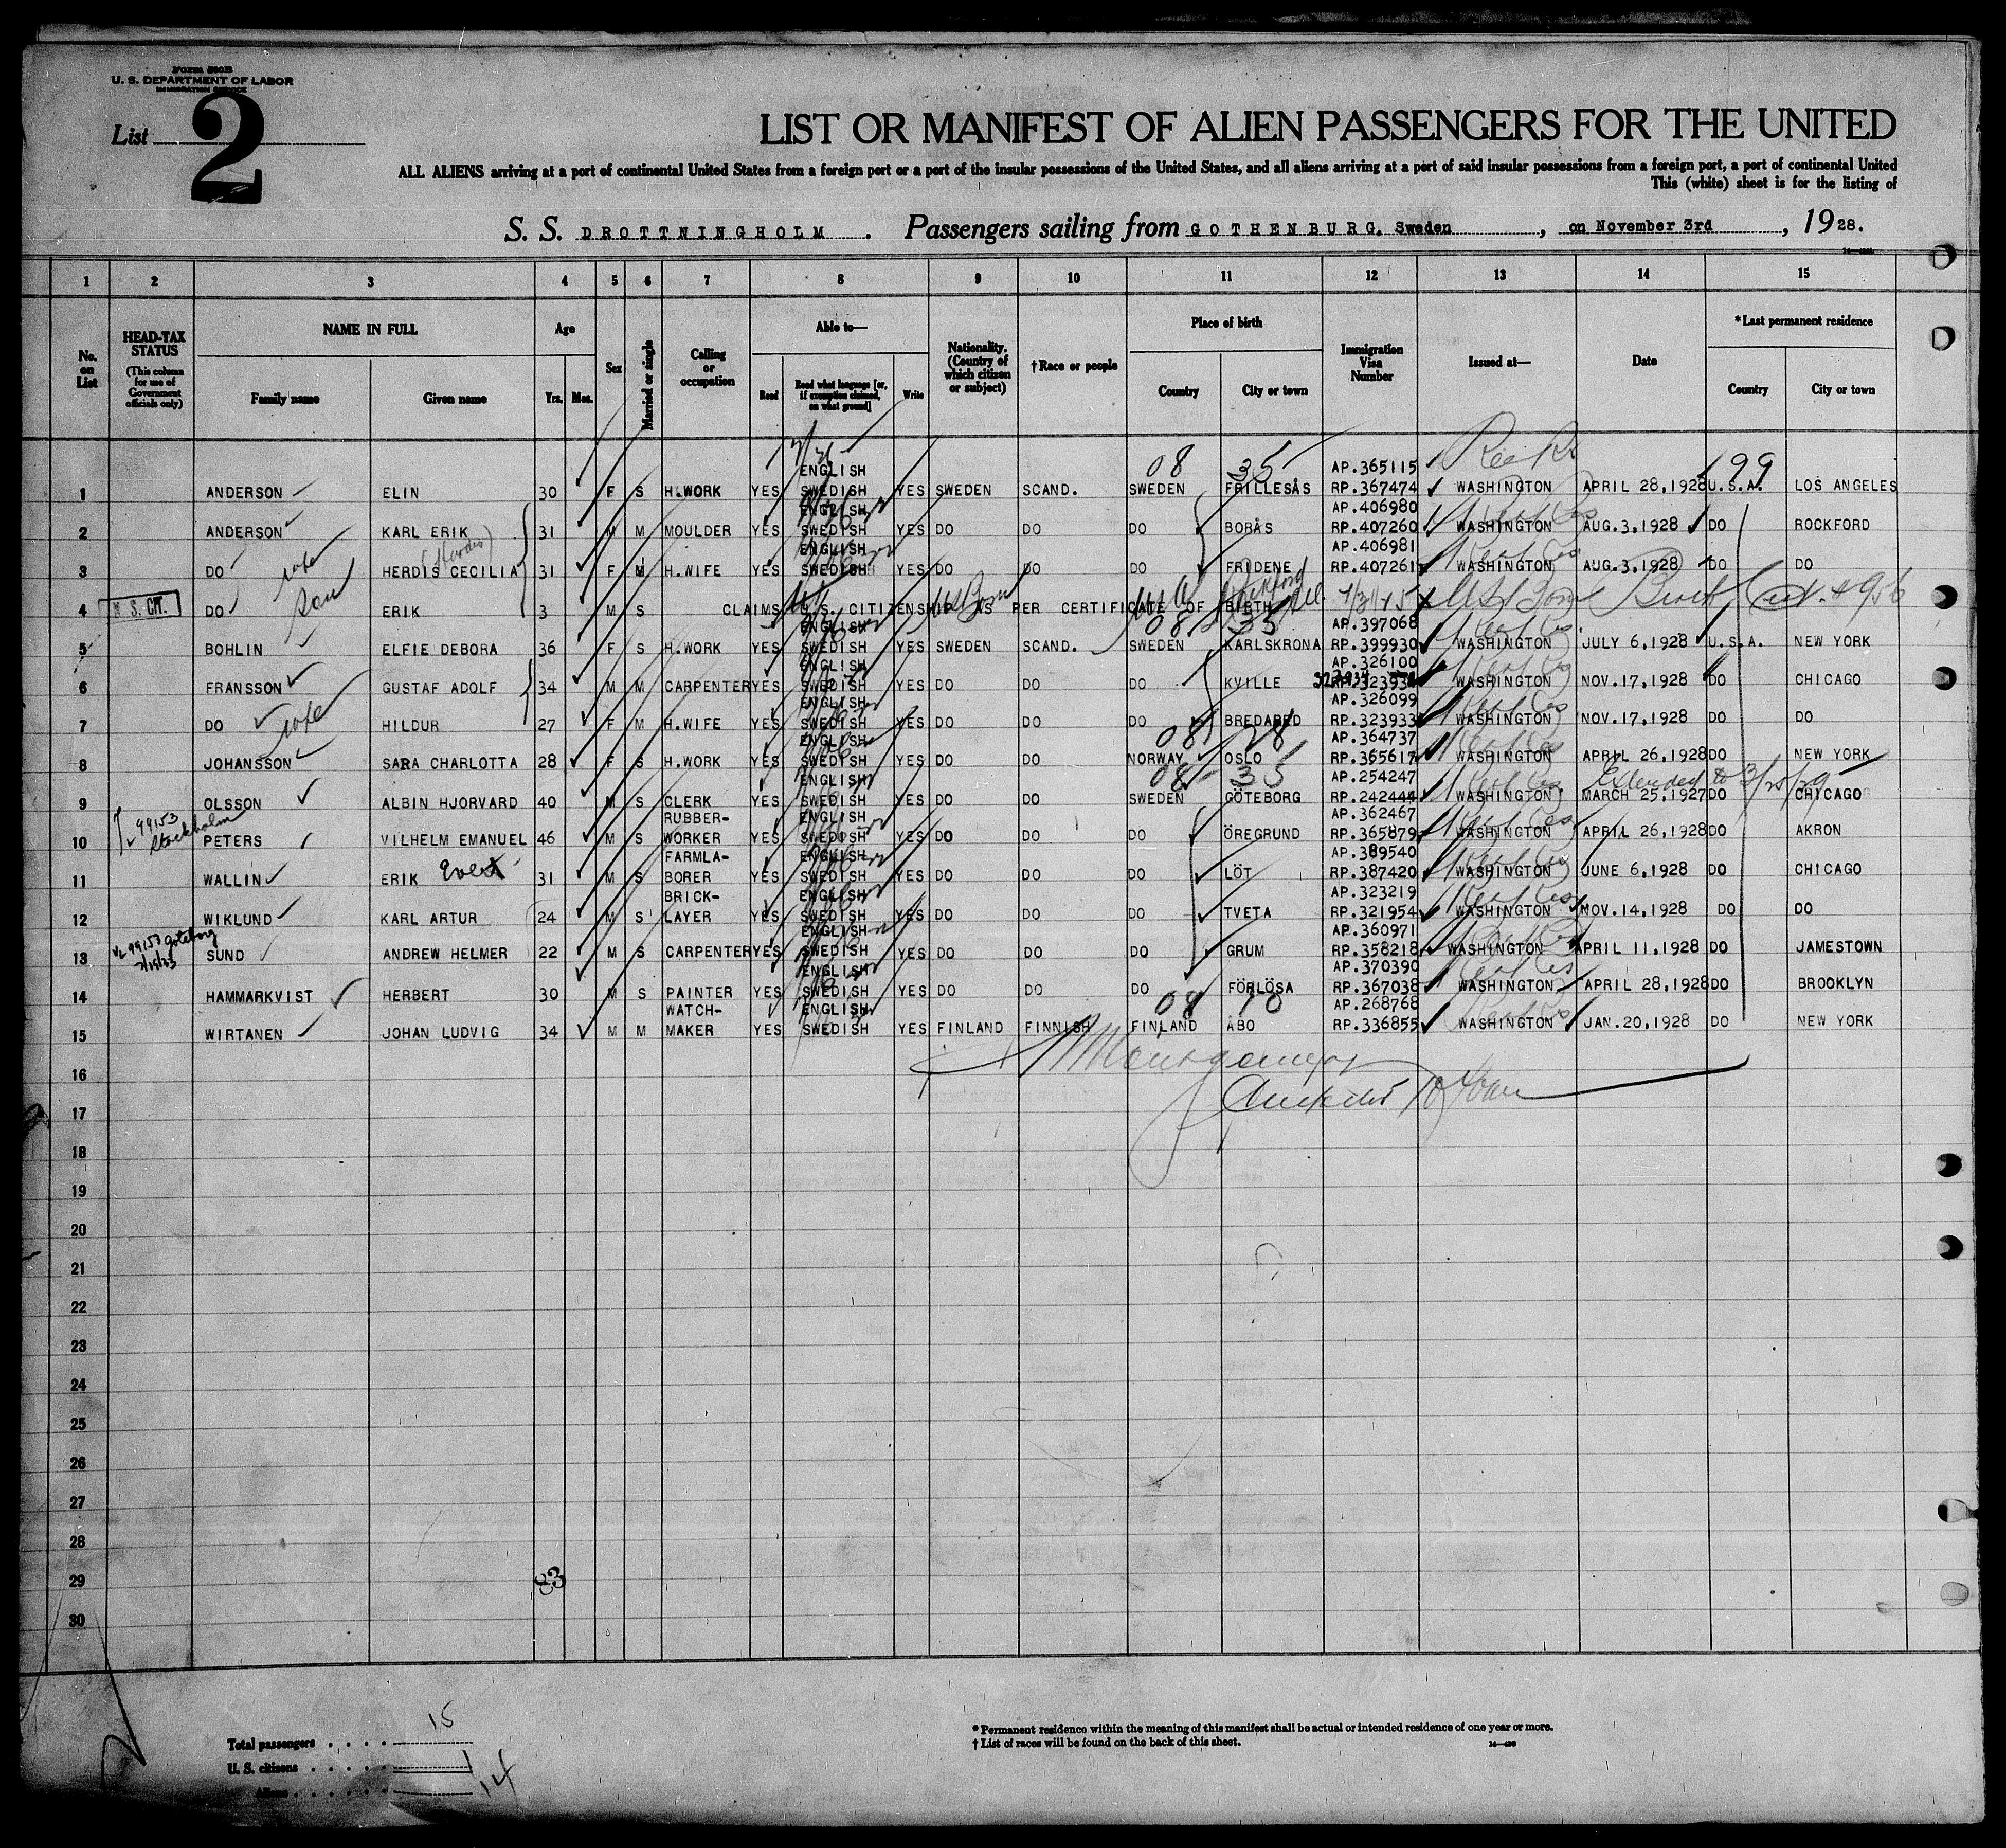 Form 500B
U. S. DEPARTMENT OF LABOR
IMMIGRATION SERVICE
List 2
LIST OR MANIFEST OF ALIEN PASSENGERS FOR THE UNITED
ALL ALIENS arriving at a port of continental United States from a foreign port or a port of the insular possessions of the United States, and all aliens arriving at a port of said insular possessions from a foreign port, a port of continental United
This (white) sheet is for the listing of
S. S. DROTTNINGHOLM . Passengers sailing from GOTHENBURG, Sweden , on November 3rd , 1928.
1 2 3 4 5 6 7 8 9 10 11 12 13 14 15
No. on List
HEAD-TAX STATUS (This column for use of Government officials only)
NAME IN FULL
Family name Given name
Age
Yrs. Mos.
Sex
Married or single
Calling or occupation
Able to—
Read
Read what language [or, if exemption claimed, on what ground]
Write
Nationality. (Country of which citizen or subject)
†Race or people
Place of birth
Country City or town
Immigration Visa Number
Issued at—
Date
*Last permanent residence
Country City or town
08 35 199
ENGLISH AP.365115
1 ANDERSON ELIN 30 F S H.WORK YES SWEDISH YES SWEDEN SCAND. SWEDEN FRILLESÅS RP.367474 WASHINGTON APRIL 28,1928 U.S.A. LOS ANGELES
ENGLISH AP.406980
2 ANDERSON KARL ERIK 31 M M MOULDER YES SWEDISH YES DO DO DO BORÅS RP.407260 WASHINGTON AUG.3,1928 DO ROCKFORD
ENGLISH AP.406981
3 DO wife HERDIS CECILIA (Herdis) 31 F M H.WIFE YES SWEDISH YES DO DO DO FRIDENE RP.407261 WASHINGTON AUG.3,1928 DO DO
4 U. S. CIT. DO son ERIK 3 M S CLAIMS U.S. CITIZENSHIP AS PER CERTIFICATE OF BIRTH US Born Rockford Ill.
08 35
ENGLISH AP.397068
5 BOHLIN ELFIE DEBORA 36 F S H.WORK YES SWEDISH YES SWEDEN SCAND. SWEDEN KARLSKRONA RP.399930 WASHINGTON JULY 6,1928 U.S.A. NEW YORK
ENGLISH AP.326100
6 FRANSSON GUSTAF ADOLF 34 M M CARPENTER YES SWEDISH YES DO DO DO KVILLE RP.323934 WASHINGTON NOV.17,1928 DO CHICAGO
ENGLISH AP.326099
7 DO wife HILDUR 27 F M H.WIFE YES SWEDISH YES DO DO DO BREDARED RP.323933 WASHINGTON NOV.17,1928 DO DO
08 28
ENGLISH AP.364737
8 JOHANSSON SARA CHARLOTTA 28 F S H.WORK YES SWEDISH YES DO DO NORWAY OSLO RP.365617 WASHINGTON APRIL 26,1928 DO NEW YORK
08 35 Extended to 3/25/29
ENGLISH AP.254247
9 OLSSON ALBIN HJORVARD 40 M S CLERK YES SWEDISH YES DO DO SWEDEN GÖTEBORG RP.242444 WASHINGTON MARCH 25,1927 DO CHICAGO
99153 Stockholm
RUBBER- ENGLISH AP.362467
10 PETERS VILHELM EMANUEL 46 M S WORKER YES SWEDISH YES DO DO DO ÖREGRUND RP.365879 WASHINGTON APRIL 26,1928 DO AKRON
FARMLA- ENGLISH AP.389540
11 WALLIN ERIK Evert 31 M S BORER YES SWEDISH YES DO DO DO LÖT RP.387420 WASHINGTON JUNE 6,1928 DO CHICAGO
BRICK- ENGLISH AP.323219
12 WIKLUND KARL ARTUR 24 M S LAYER YES SWEDISH YES DO DO DO TVETA RP.321954 WASHINGTON NOV.14,1928 DO DO
99153 Göteborg
ENGLISH AP.360971
13 SUND ANDREW HELMER 22 M S CARPENTER YES SWEDISH YES DO DO DO GRUM RP.358218 WASHINGTON APRIL 11,1928 DO JAMESTOWN
ENGLISH AP.370390
14 HAMMARKVIST HERBERT 30 M S PAINTER YES SWEDISH YES DO DO DO FÖRLÖSA RP.367038 WASHINGTON APRIL 28,1928 DO BROOKLYN
08 10
WATCH- ENGLISH AP.268768
15 WIRTANEN JOHAN LUDVIG 34 M M MAKER YES SWEDISH YES FINLAND FINNISH FINLAND ÅBO RP.336855 WASHINGTON JAN.20,1928 DO NEW YORK
16 Montgomery
17
18
19
20
21
22
23
24
25
26
27
28
29 83
30
Total passengers . . . . 15
U. S. citizens . . . . . 1
Aliens . . . . . . 14
* Permanent residence within the meaning of this manifest shall be actual or intended residence of one year or more.
† List of races will be found on the back of this sheet.